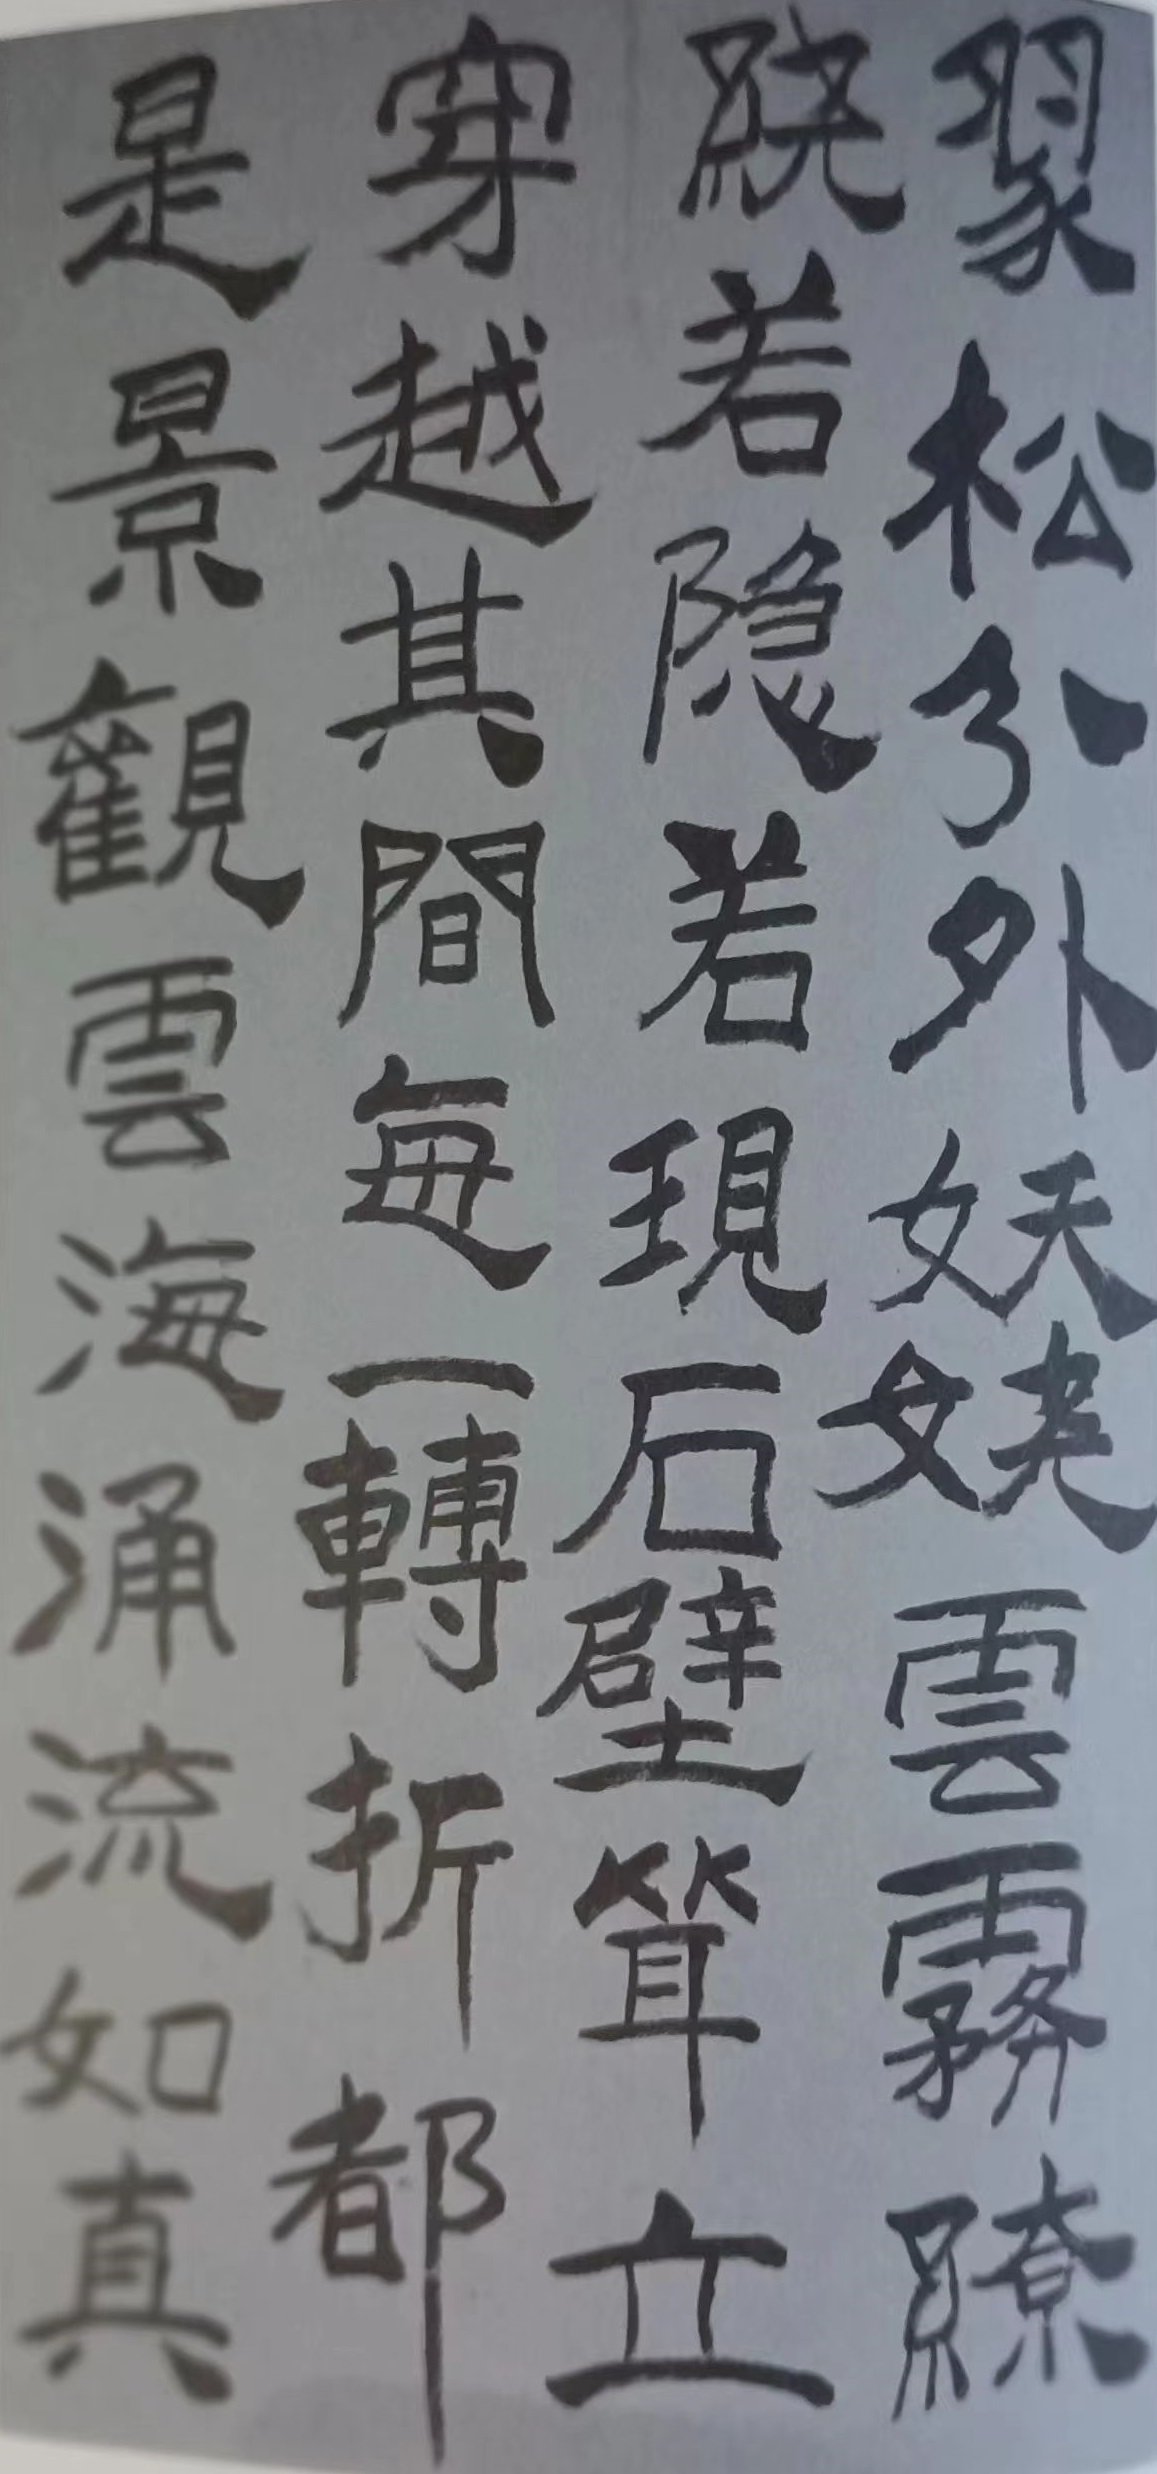 翠松分外妖娆雲霧繚
繞若隐若現石壁耸立
穿越其間每一轉折都
是景觀雲海涌流如真